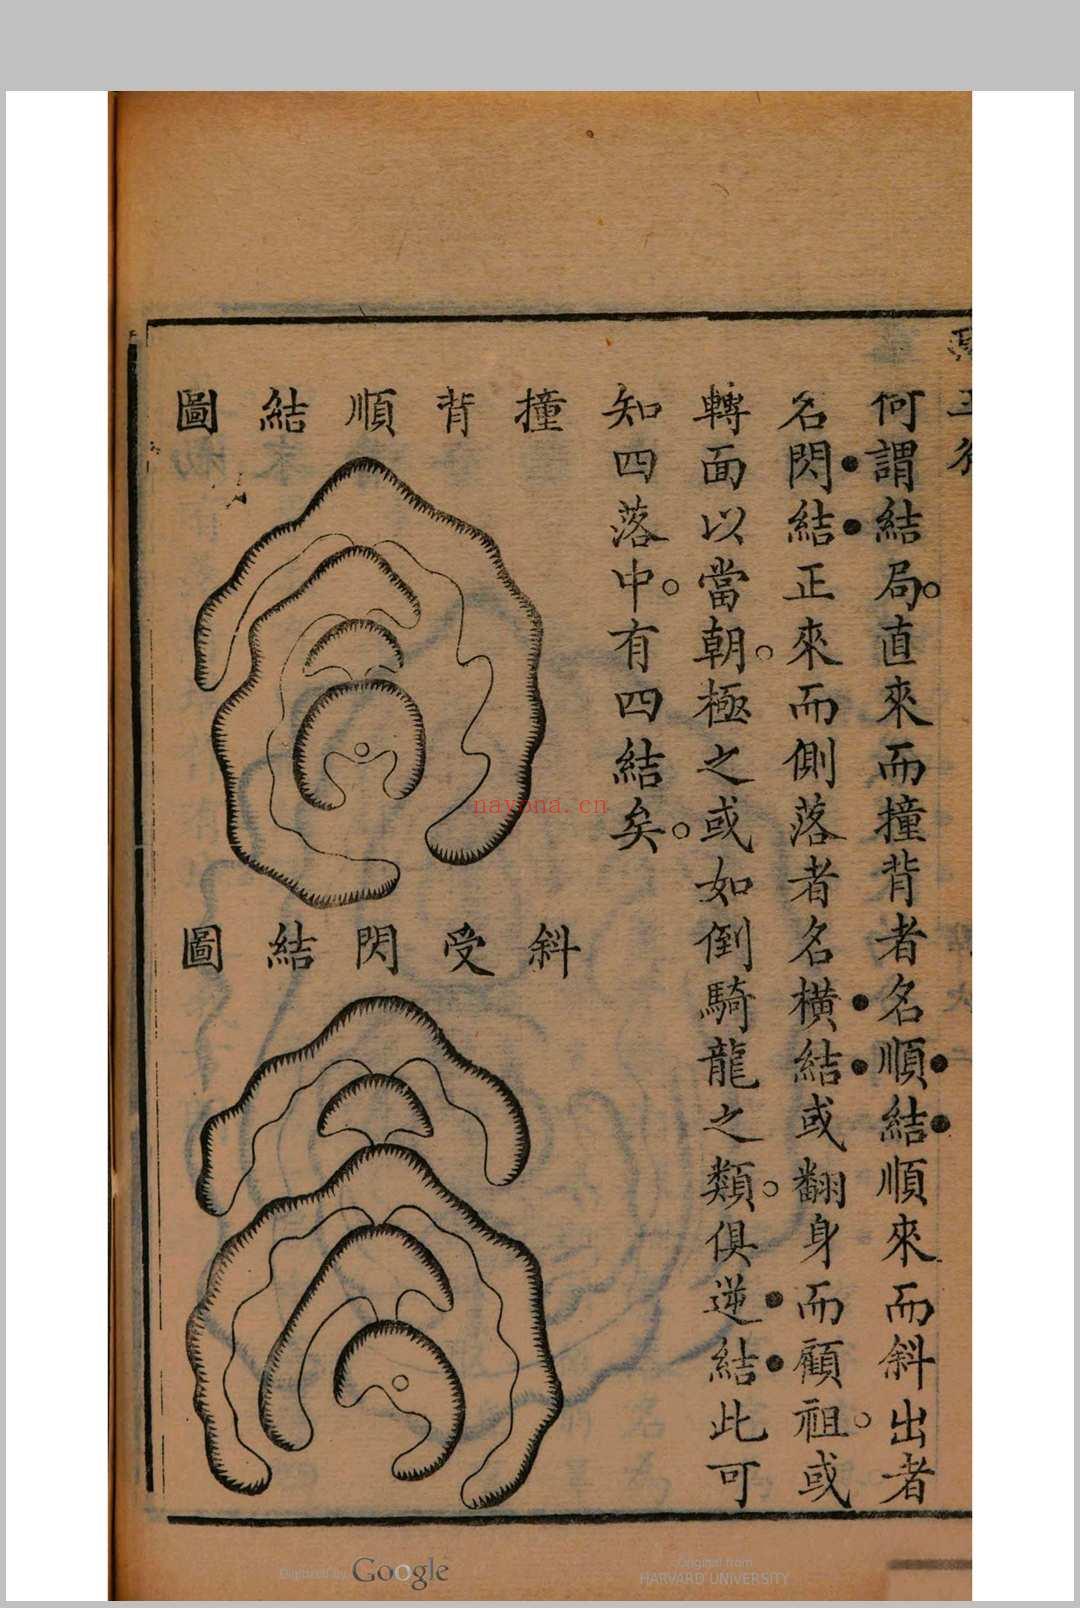 何謂結局。直來而撞背者名順結順來而斜出者
名閃結正來而側落者名橫結或翻身而顧祖。或
轉面以當朝。極之或如倒騎龍之類。俱逆結此可
知四落中。有四結矣。
撞背順結圖
斜受閃結圖
nayona.cn
Digitized by Google
Original from
HARVARD UNIVERSITY